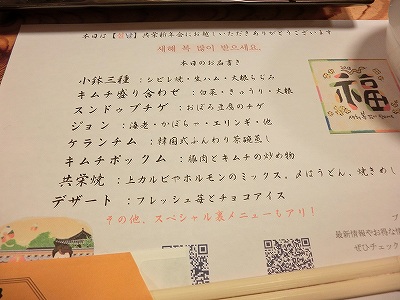 本日は【설날】共栄新年会にお越しいただきありがとうございます
새해 복 많이 받으세요.
本日のお品書き
小鉢三種：シビレ焼・生ハム・大根ちぢみ
キムチ盛り合わせ：白菜・きゅうり・大根
スンドゥブチゲ：おぼろ豆腐のチゲ
ジョン：海老・かぼちゃ・エリンギ・他
ケランチム：韓国式ふんわり茶碗蒸し
キムチポックム：豚肉とキムチの炒め物
共栄焼：上カルビやホルモンのミックス、〆はうどん、焼きめし
デザート：フレッシュ苺とチョコアイス
その他、スペシャル裏メニューもアリ！
福
最新情報やお得な
ぜひチェック